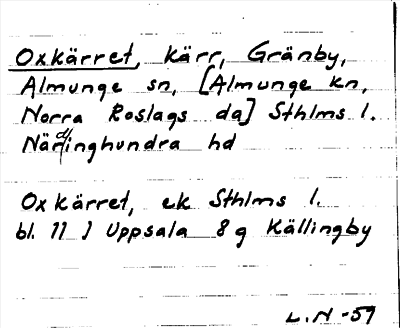 Oxkärret, kärr, Gränby,
Almunge sn, [Almunge kn,
Norra Roslags da] Sthlms l.
Närdinghundra hd
Oxkärret, ek Sthlms l.
bl. 11 J Uppsala 8g Källingby
L.N-57